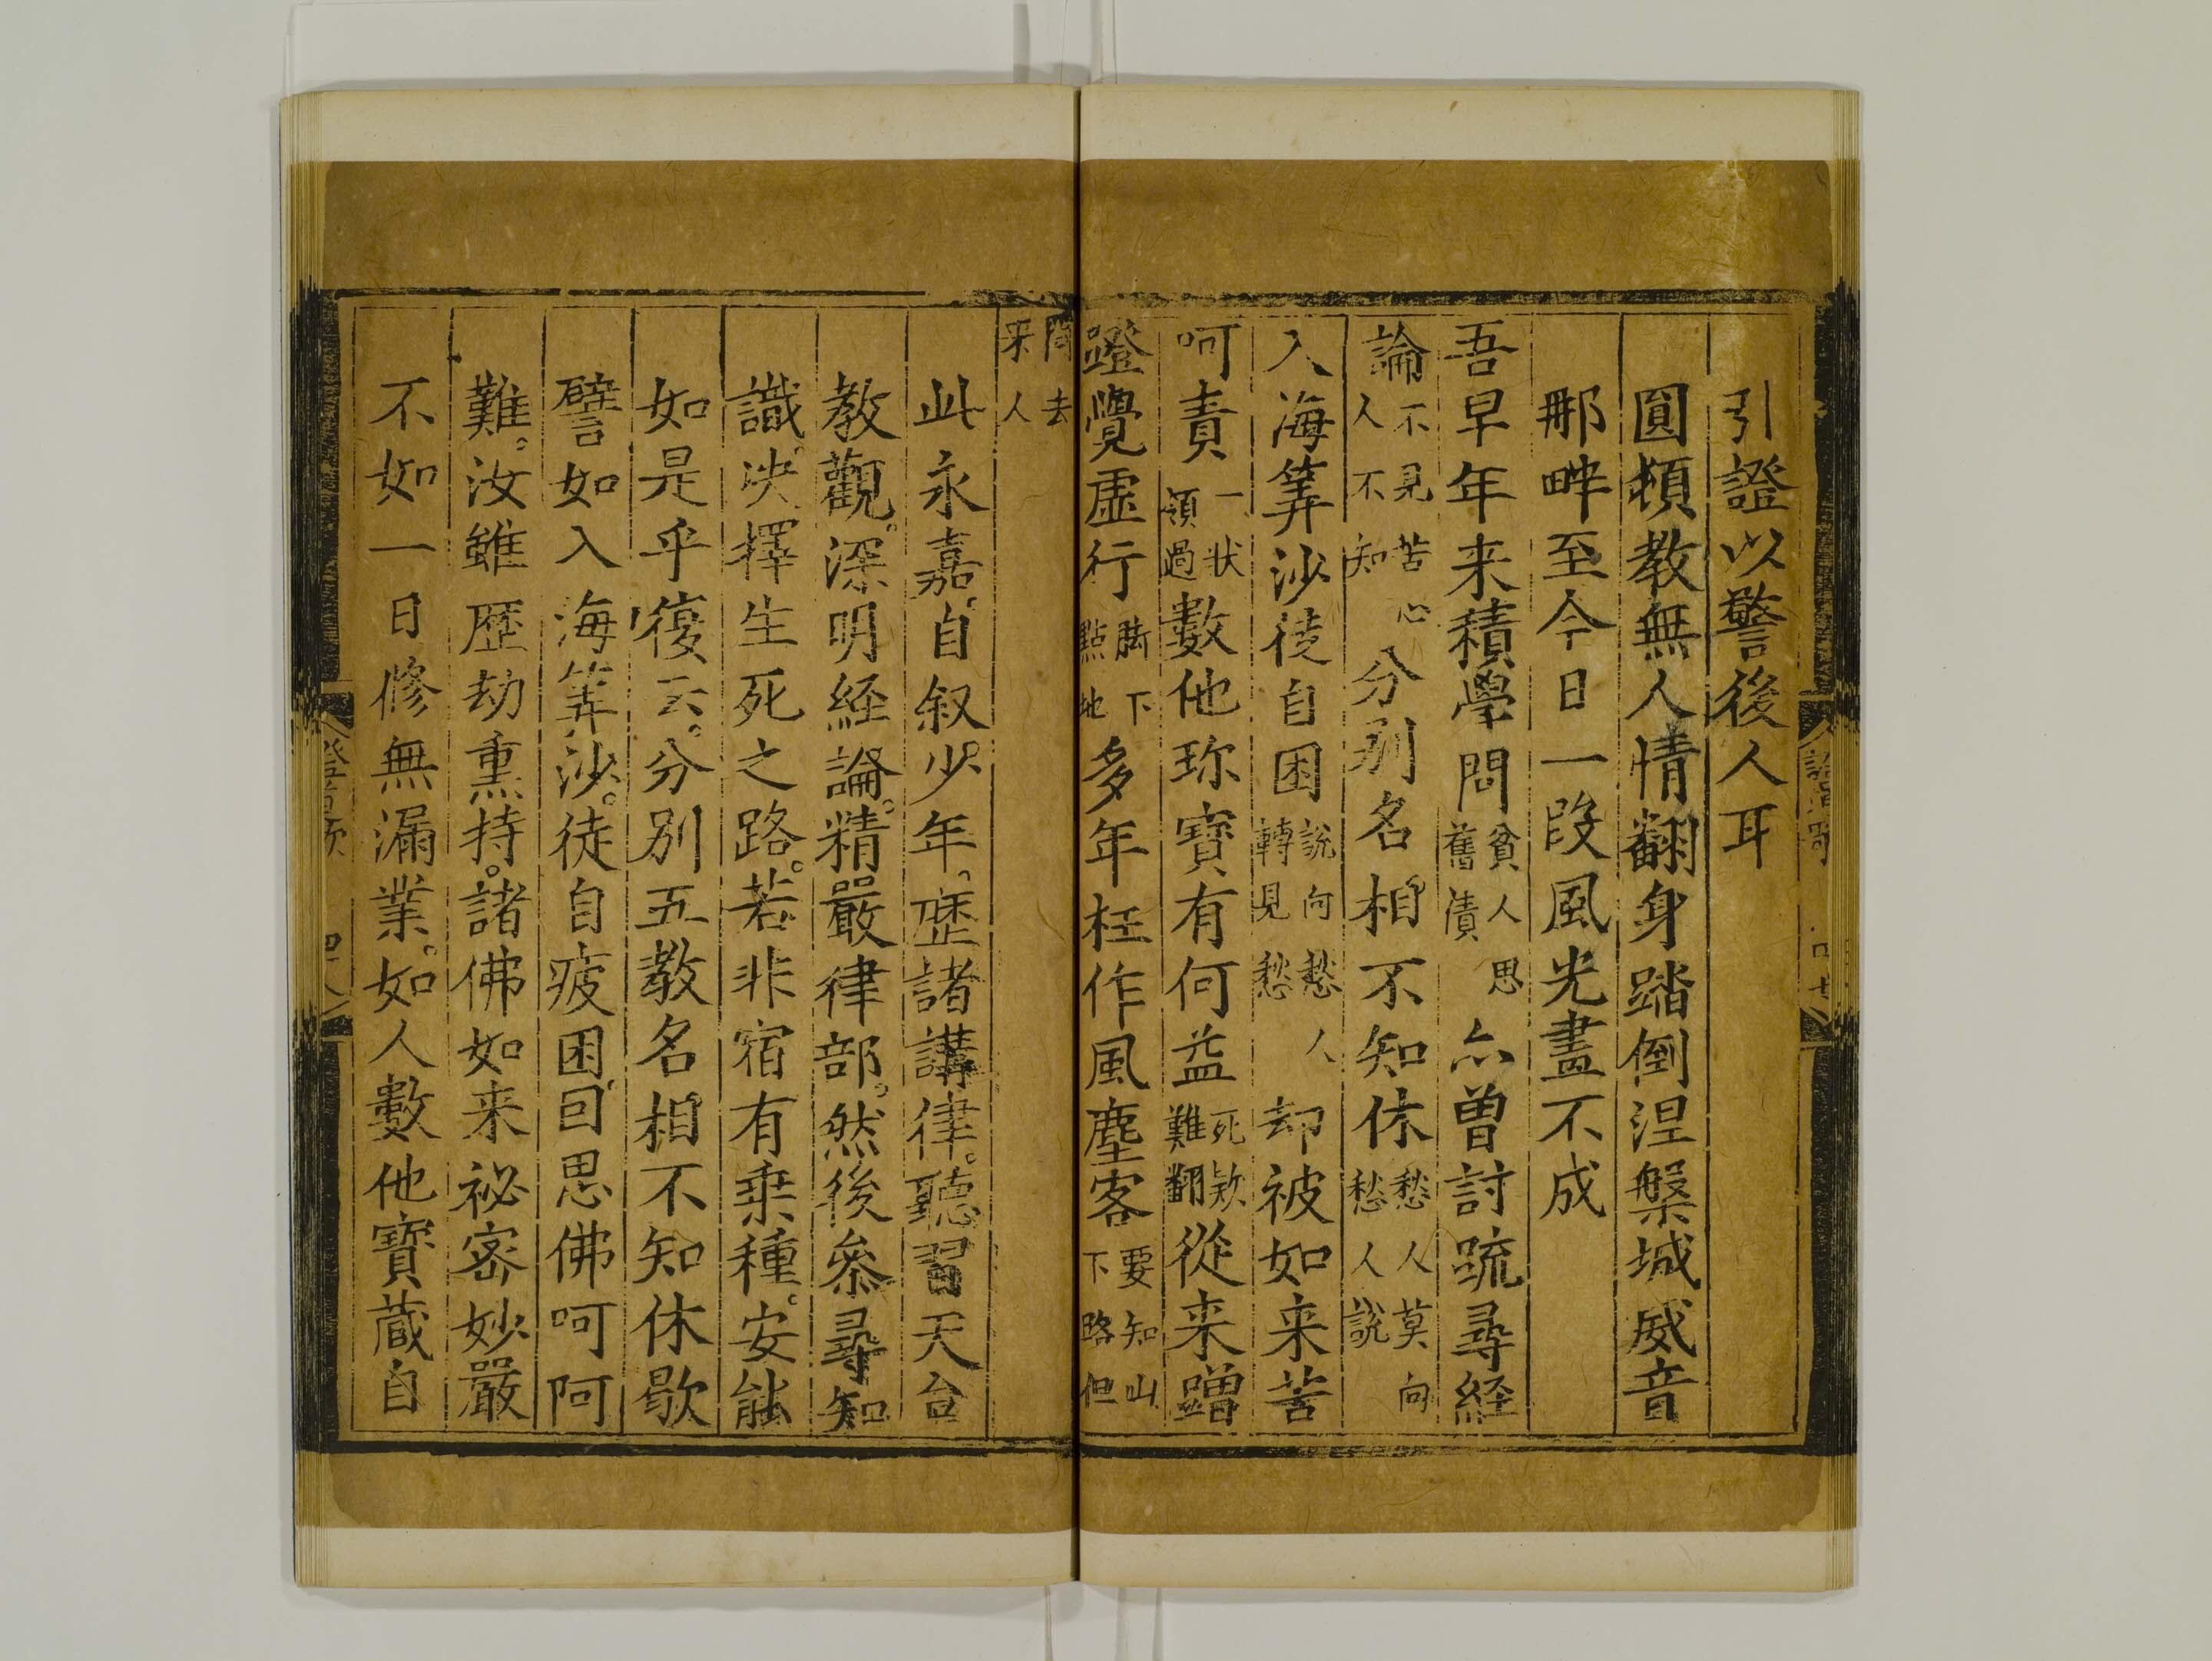 引證以警後人耳
圓頓教無人情翻身踏倒涅槃城威音
那畔至今日一段風光盡不成
吾早年来積學問貧人思舊債亦曾討疏尋経
論不見苦心人不知分別名相不知休愁人莫向愁人說
入海筭沙徒自困說向愁人轉見愁却被如来苦
呵責一狀領過數他珎寳有何益死欵難翻從来蹭
蹬覺虛行脚下點地多年枉作風塵客要知山下路但
問去来人
此永嘉自叙少年歷諸講律聽習天台
教觀。深明経論。精嚴律部。然後叅尋知
識。決擇生死之路。若非宿有乗種。安能
如是乎復云。分別五教名相不知休歇
譬如入海筭沙。徒自疲困。回思佛呵阿
難。汝雖歷劫熏持。諸佛如来祕密妙嚴
不如一日修無漏業。如人數他寳蔵自